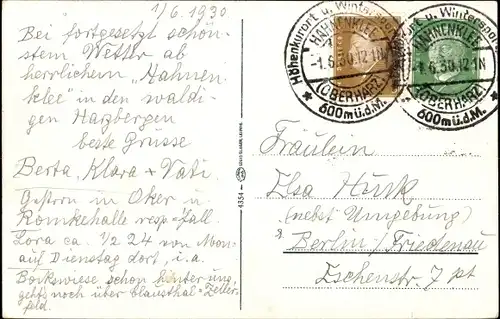 1/6.1930
Bei fortgesetzt schön-
stem Wetter ab
herrlichem "Hahnen-
klee" in den waldi-
gen Harzbergen
beste Grüsse
Berta, Klara + Vati.
Gestern in Oker u.
Romkehalle resp. Fall.
Lora ca. 1/2 24 von Mon-
auf Dienstag dort, i.a.
Bockswiese schon hinter uns,
gehts noch über Clausthal-Zeller-
feld.
4354
Höhenkurort u. Wintersport
HAHNENKLEE
-1.6.30.12-1N
(OBERHARZ)
600 m ü.d.M.
HAHNENKLEE
-1.6.30.12-1N
(OBERHARZ)
600 m ü.d.M.
Fräulein
Elsa Huck
(nebst Umgebung)
Berlin-Friedenau
Eschenstr. 7 pt